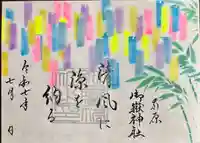 御嶽神社
清風に
涼を
納る
令和七年
七月 日